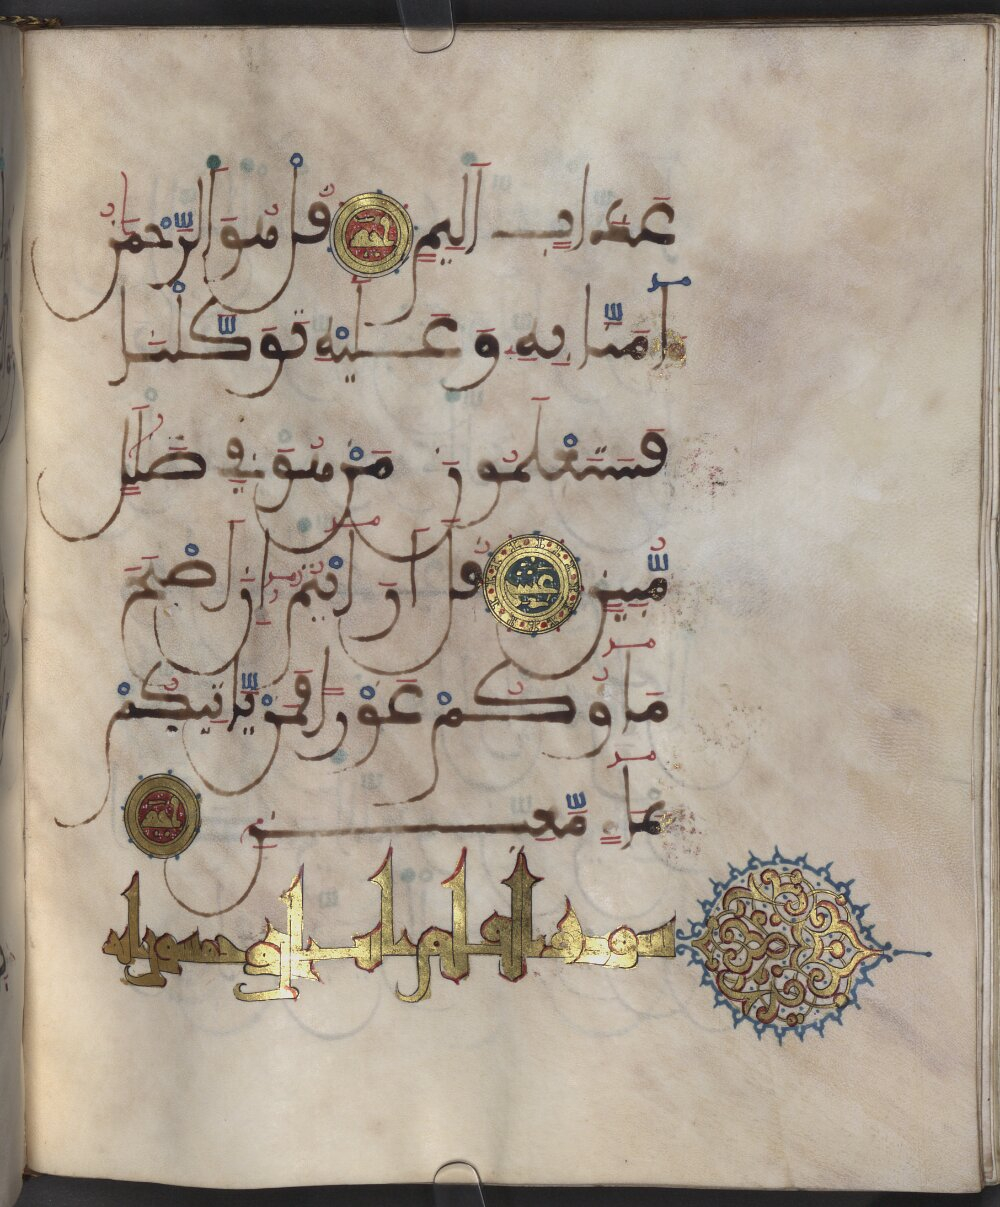 عَذَابٍ اَلِيمٍ قُلْ هُوَ اَلرَّحْمَٰنُ
ءَامَنَّا بِهِۦ وَعَلَيْهِ تَوَكَّلْنَا
فَسَتَعْلَمُونَ مَنْ هُوَ فِي ضَلَٰلٍ
مُّبِينٍ قُلَ اَرَٰيْتُمْ إِنَ اَصْبَحَ
مَآؤُكُمْ غَوْرًا فَمَنْ يَّاتِيكُمْ
بِمَآءٍ مَّعِينٍ
سورة والقلم وخمسون اية